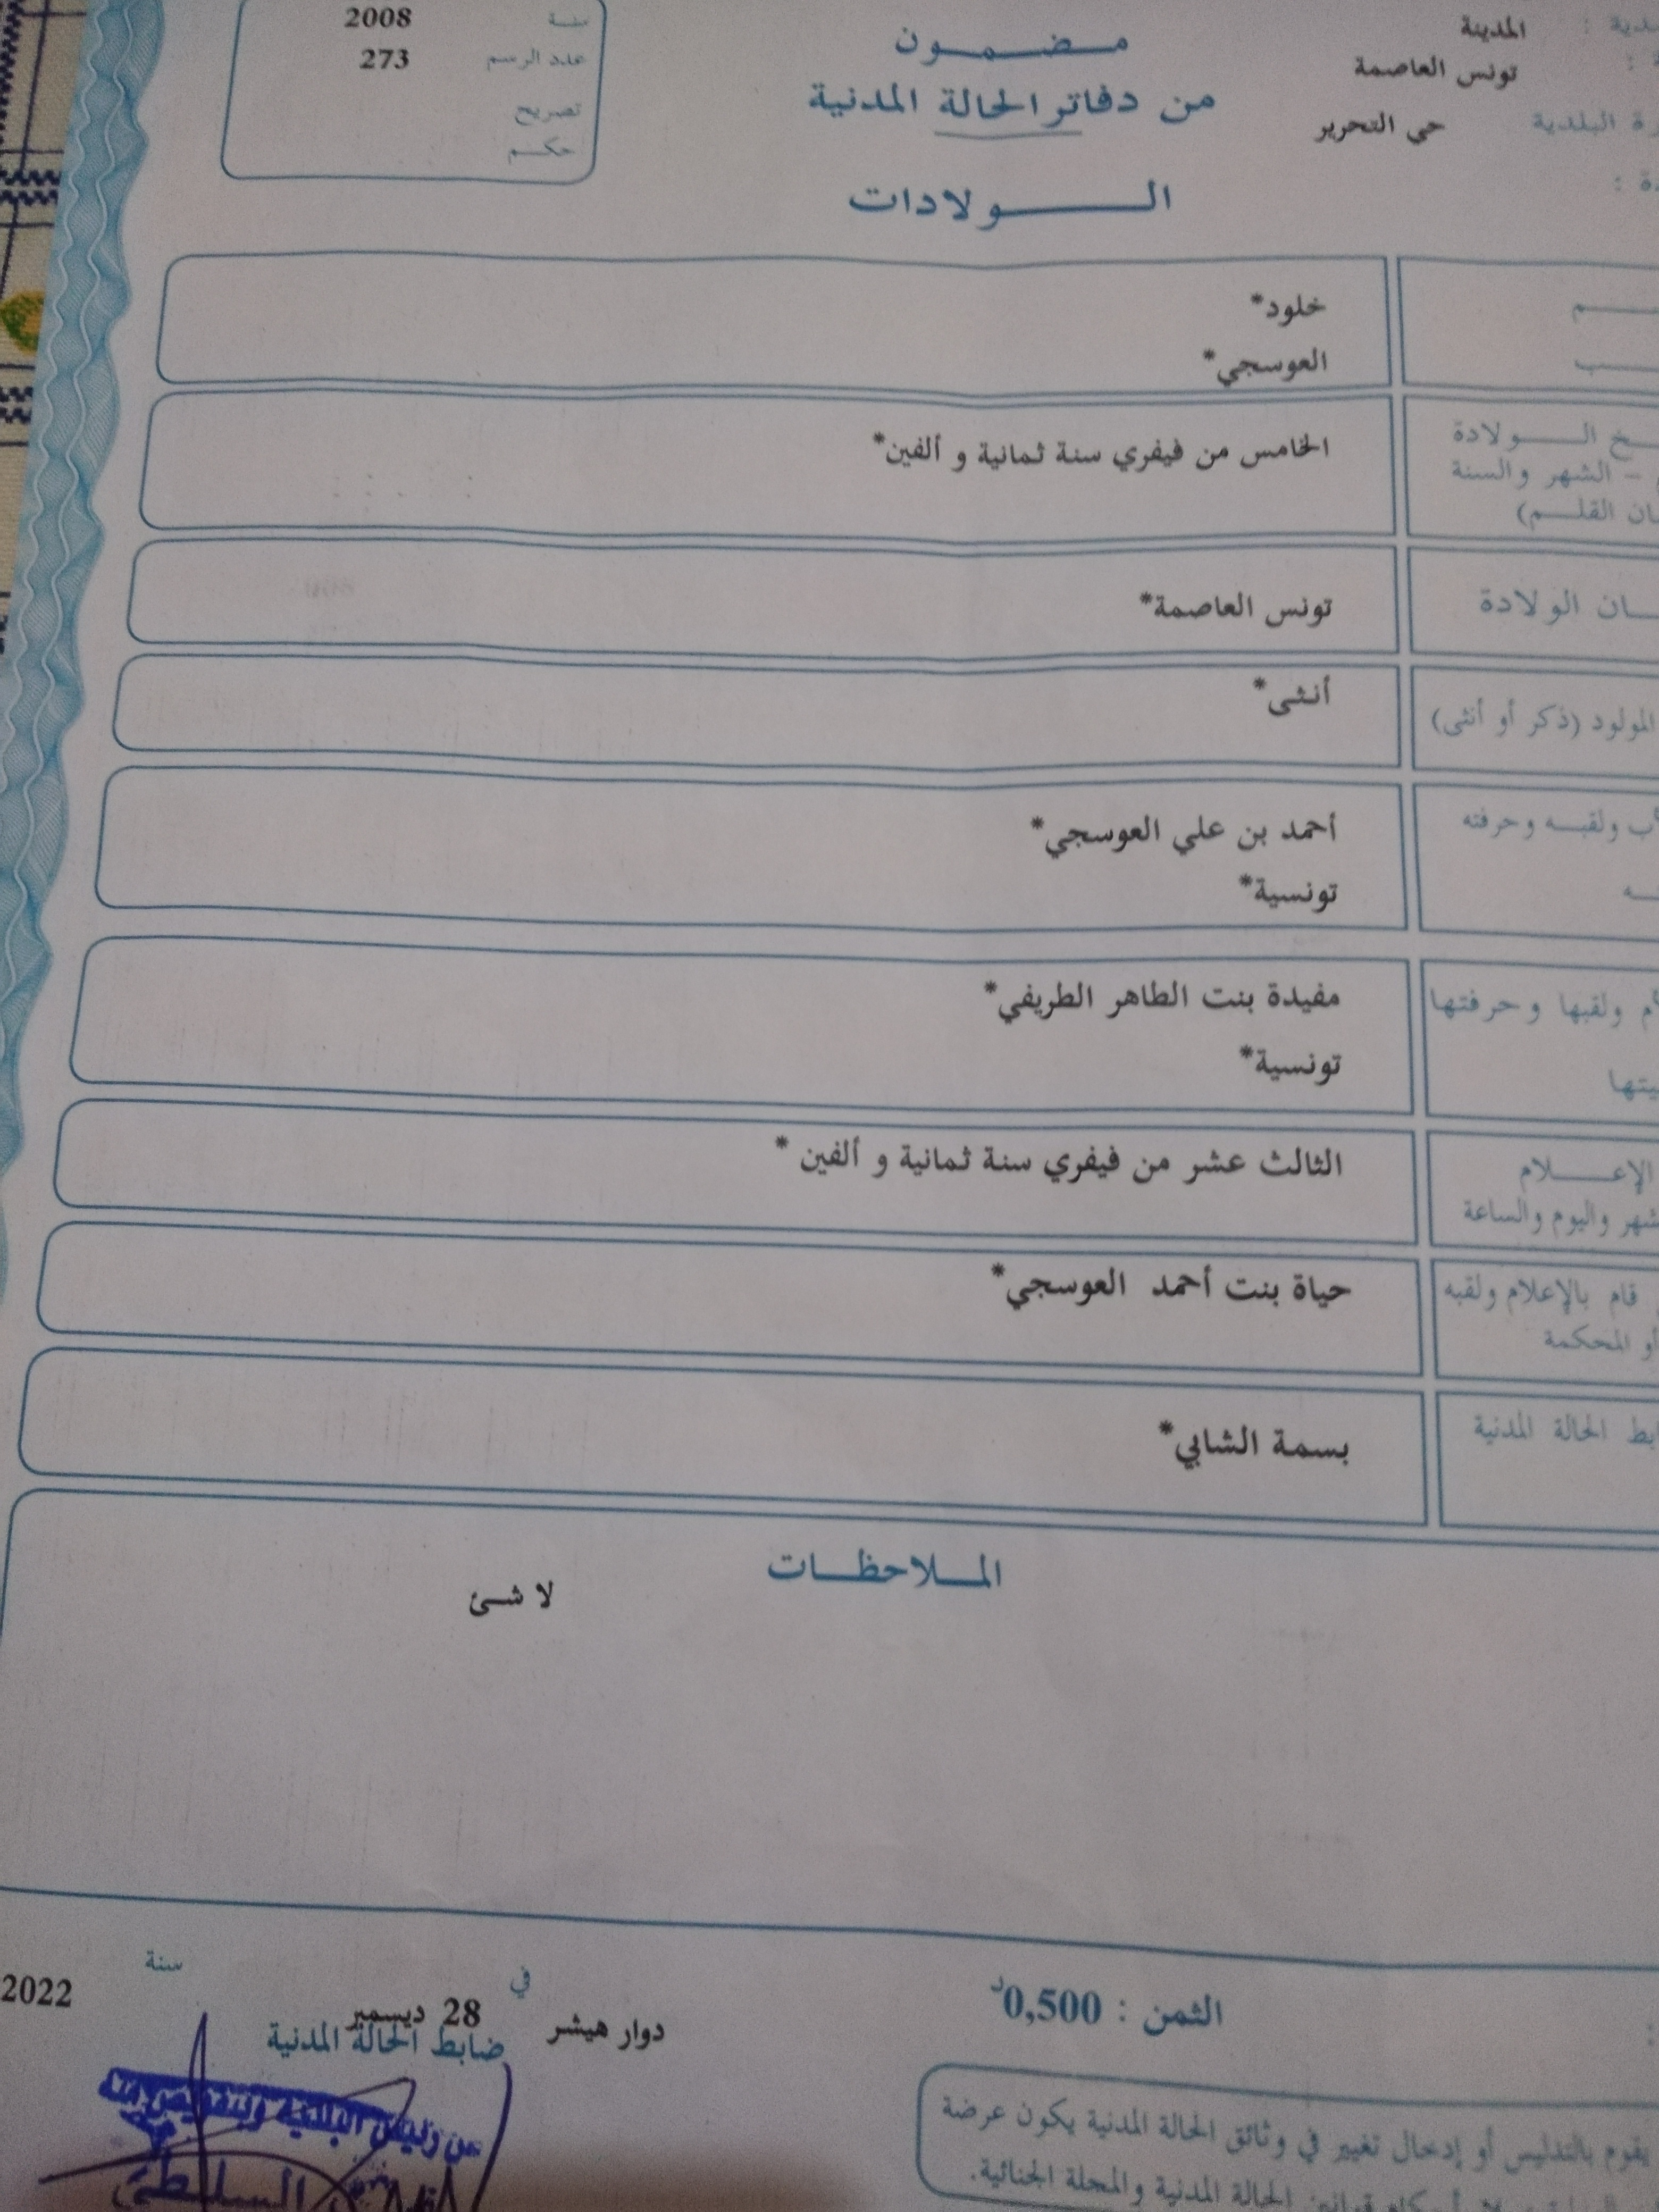 المدينة
تونس العاصمة
البلدية حي التحرير
مضمون
من دفاتر الحالة المدنية
الولادات
سنة 2008
عدد الرسم 273
تصريح
حكم
خلود*
العوسجي*
الولادة
الشهر والسنة
القلم)
الخامس من فيفري سنة ثمانية و ألفين*
الولادة
تونس العاصمة*
المولود (ذكر أو أنثى)
أنثى*
ولقبه وحرفته
أحمد بن علي العوسجي*
تونسية*
ولقبها وحرفتها
مفيدة بنت الطاهر الطريفي*
تونسية*
الإعلام
واليوم والساعة
الثالث عشر من فيفري سنة ثمانية و ألفين *
قام بالإعلام ولقبه
أو المحكمة
حياة بنت أحمد العوسجي*
الحالة المدنية
بسمة الشابي*
الملاحظات
لا شئ
الثمن : 0,500د
دوار هيشر في 28 ديسمبر سنة 2022
ضابط الحالة المدنية
عن رئيس البلدية وبتفويض منه
يقوم بالتدليس أو إدخال تغيير في وثائق الحالة المدنية يكون عرضة
قوانين الحالة المدنية والمجلة الجنائية.